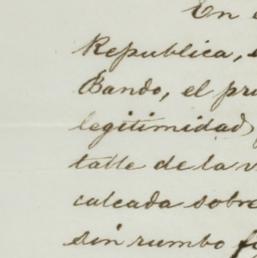 En
Republica,
Bando, el
legitimidad
talle de la
calcada sobre
sin rumbo